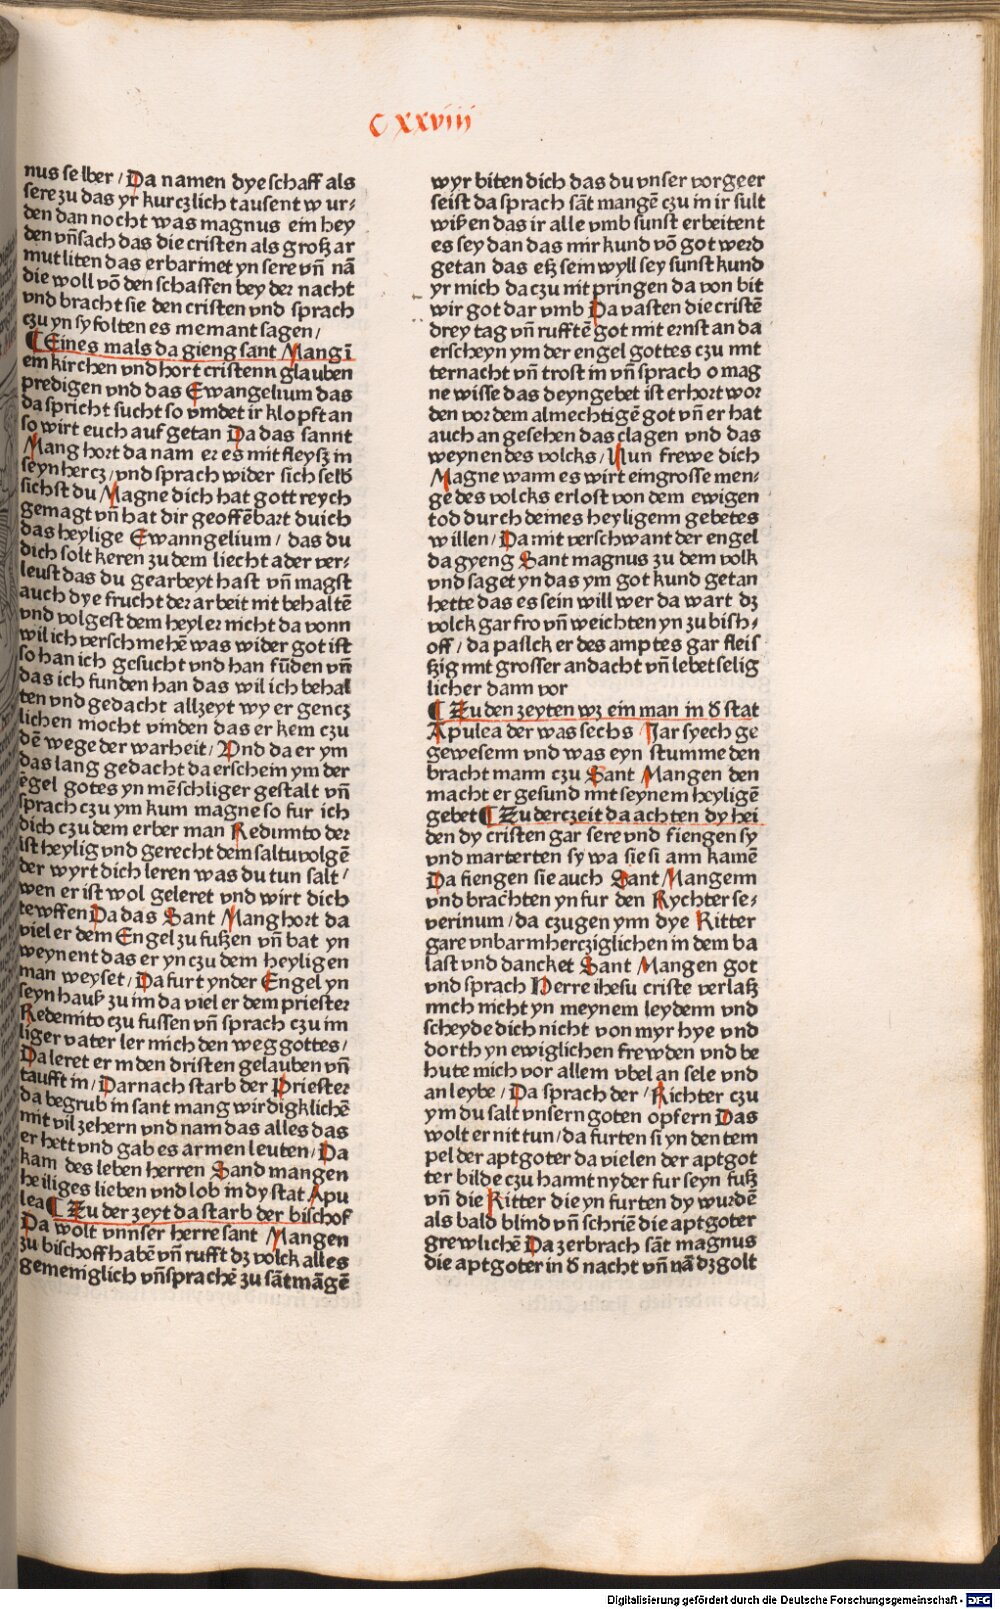 C xxviii
nus selber / Da namen dye schaff als
sere zu das yr kurczlich tausent w ur⸗
den dan nocht was magnus ein hey
den vn̄ sach das die cristen als groß ar
mut liten das erbarmet yn sere vn̄ nā
die woll vō den schaffen bey der nacht
vnd bracht sie den cristen vnd sprach
czu yn sy solten es niemant sagen /
¶ Eines mals da gieng sant Mang ī
ein kirchen vnd hort cristenn glauben
predigen vnd das Ewangelium das
da spricht sucht so vindet ir klopft an
so wirt euch auf getan Da das sannt
Mang hort da nam er es mit fleysz in
seyn hercz / vnd sprach wider sich selb
sichst du Magne dich hat gott reych
gemagt vn̄ hat dir geoffēbart duich
das heylige Ewanngelium / das du
dich solt keren zu dem liecht ader ver⸗
leust das du gearbeyt hast vn̄ magst
auch dye frucht der arbeit nit behaltē
vnd volgest dem heyler nicht da vonn
wil ich verschmehē was wider got ist
so han ich gesucht vnd han fūden vn̄
das ich funden han das wil ich behal
ten vnd gedacht allzeyt wy er gencz
lichen mocht vinden das er kem czu
dē wege der warheit / Vnd da er ym
das lang gedacht da erschein ym der
ēgel gotes yn mēschliger gestalt vn̄
sprach czu ym kum magne so fur ich
dich czu dem erber man Redimito der
ist heylig vnd gerecht dem saltu volgē
der wyrt dich leren was du tun salt /
wen er ist wol geleret vnd wirt dich
tewffen Da das Sant Mang hort da
viel er dem Engel zu fußen vn̄ bat yn
weynent das er yn czu dem heyligen
man weyset / Da furt yn der Engel yn
seyn hauß zu im da viel er dem priester
Redemito czu fussen vn̄ sprach czu im
liger vater ler mich den weg gottes /
Da leret er in den dristen gelauben vn̄
taufft in / Darnach starb der Priester
da begrub in sant mang wirdigklichē
mit vil zehern vnd nam das alles das
er hett vnd gab es armen leuten / Da
kam des leben herren Sand mangen
heiliges lieben vnd lob in dy stat Apu
lea ¶ Zu der zeyt da starb der bischof
Da wolt vnnser herre sant Mangen
zu bischoff habē vn̄ rufft dz volck alles
gemeniglich vn̄ sprachē zu sāt māgē
wyr biten dich das du vnser vorgeer
seist da sprach sāt mangē czu in ir sult
wißen das ir alle vmb sunst erbeitent
es sey dan das mir kund vō got werd
getan das eß sein wyll sey sunst kund
yr mich da czu nit pringen da von bit
wir got dar vmb Da vasten die cristē
drey tag vn̄ rufftē got mit ernst an da
erscheyn ym der engel gottes czu mit
ternacht vn̄ trost in vn̄ sprach o mag
ne wisse das deyn gebet ist erhort wor
den vor dem almechtigē got vn̄ er hat
auch an gesehen das clagen vnd das
weynen des volcks / Nun frewe dich
Magne wann es wirt ein grosse men⸗
ge des volcks erlost von dem ewigen
tod durch deines heyligenn gebetes
willen / Da mit verschwant der engel
da gyeng Sant magnus zu dem volk
vnd saget yn das ym got kund getan
hette das es sein will wer da wart dz
volck gar fro vn̄ weichten yn zu bish⸗
off / da paslck er des amptes gar fleis
ßig mit grosser andacht vn̄ lebet selig
licher dann vor
¶ Zu den zeyten wz ein man in ď stat
Apulea der was sechs Jar syech ge
gewesenn vnd was eyn stumme den
bracht mann czu Sant Mangen den
macht er gesund mit seynem heyligē
gebet ¶ Zu der czeit da achten dy hei
den dy cristen gar sere vnd fiengen sy
vnd marterten sy wa sie si ann kamē
Da fiengen sie auch Sant Mangenn
vnd brachten yn fur den Rychter se⸗
verinum / da czugen ynn dye Ritter
gare vnbarmhercziglichen in dem ba
last vnd dancket Sant Mangen got
vnd sprach Herre ihesu criste verlaß
mich nicht yn meynem leydenn vnd
scheyde dich nicht von myr hye vnd
dorth yn ewiglichen frewden vnd be
hute mich vor allem vbel an sele vnd
an leybe / Da sprach der / Richter czu
ym du salt vnsern goten opfern Das
wolt er nit tun / da furten si yn den tem
pel der aptgoter da vielen der aptgot
ter bilde czu hannt nyder fur seyn fuß
vn̄ die Ritter die yn furten dy wurdē
als bald blind vn̄ schriē die aptgoter
grewlichē Da zerbrach sāt magnus
die aptgoter in ď nacht vn̄ nā dz golt
Digitalisierung gefördert durch die Deutsche Forschungsgemeinschaft - DFG